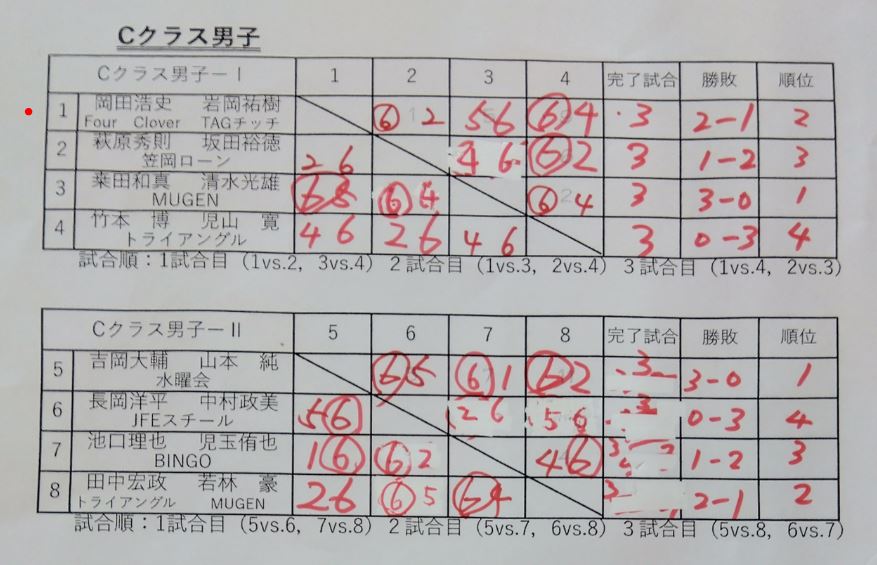 Cクラス男子
Cクラス男子ーI 1 2 3 4 完了試合 勝敗 順位
1 岡田浩史 岩岡祐樹 6 2 5 6 6 4 3 2-1 2
Four Clover TAGチッチ
2 萩原秀則 坂田裕徳 2 6 4 6 6 2 3 1-2 3
笠岡ローン
3 桒田和真 清水光雄 6 5 6 4 6 4 3 3-0 1
MUGEN
4 竹本 博 児山 寛 4 6 2 6 4 6 3 0-3 4
トライアングル
試合順：1試合目（1vs.2, 3vs.4） 2試合目（1vs.3, 2vs.4） 3試合目（1vs.4, 2vs.3）
Cクラス男子ーII 5 6 7 8 完了試合 勝敗 順位
5 吉岡大輔 山本 純 6 5 6 1 6 2 3 3-0 1
水曜会
6 長岡洋平 中村政美 5 6 2 6 5 6 3 0-3 4
JFEスチール
7 池口理也 児玉侑也 1 6 6 2 4 6 1-2 3
BINGO
8 田中宏政 若林 豪 2 6 6 5 6 4 2-1 2
トライアングル MUGEN
試合順：1試合目（5vs.6, 7vs.8） 2試合目（5vs.7, 6vs.8） 3試合目（5vs.8, 6vs.7）